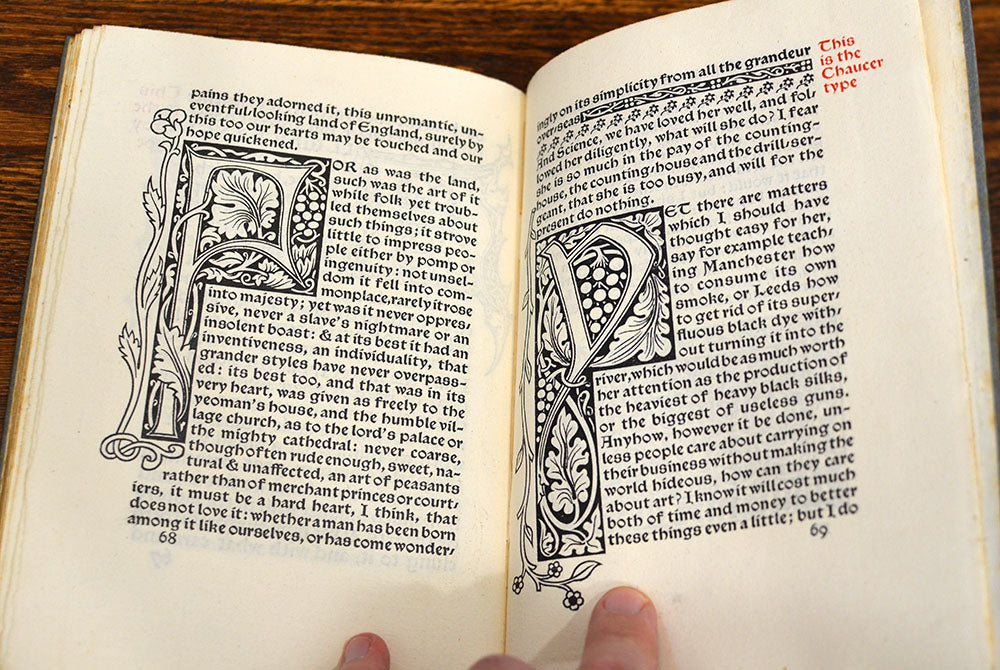 pains they adorned it, this unromantic, un-
eventful-looking land of England, surely by
this too our hearts may be touched and our
hope quickened.
FOR as was the land,
such was the art of it
while folk yet troub-
led themselves about
such things; it strove
little to impress peo-
ple either by pomp or
ingenuity: not unsel-
dom it fell into com-
monplace, rarely it rose
into majesty; yet was it never oppres-
sive, never a slave's nightmare or an
insolent boast: & at its best it had an
inventiveness, an individuality, that
grander styles have never overpass-
ed: its best too, and that was in its
very heart, was given as freely to the
yeoman's house, and the humble vil-
lage church, as to the lord's palace or
the mighty cathedral: never coarse,
though often rude enough, sweet, na-
tural & unaffected, an art of peasants
rather than of merchant princes or court-
iers, it must be a hard heart, I think, that
does not love it: whether a man has been born
among it like ourselves, or has come wonder-
68
ingly on its simplicity from all the grandeur
over-seas
And Science, we have loved her well, and fol-
lowed her diligently, what will she do? I fear
she is so much in the pay of the counting-
house, the counting-house and the drill-ser-
geant, that she is too busy, and will for the
present do nothing.
YET there are matters
which I should have
thought easy for her,
say for example teach-
ing Manchester how
to consume its own
smoke, or Leeds how
to get rid of its super-
fluous black dye with-
out turning it into the
river, which would be as much worth
her attention as the production of
the heaviest of heavy black silks,
or the biggest of useless guns.
Anyhow, however it be done, un-
less people care about carrying on
their business without making the
world hideous, how can they care
about art? I know it will cost much
both of time and money to better
these things even a little; but I do
69
This
is the
Chaucer
type